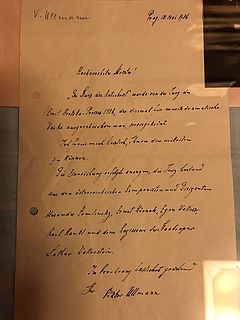 V. Ullmann
Prag, 18. Mai 1936
Hochverehrter Meister!
"Der Sturz des Antichrist" wurde von der Jury des
Emil Hertzka-Preises 1936, der diesmal für musikdramatische
Werke ausgeschrieben war, preisgekrönt.
Ich freue mich herzlich, Ihnen dies mitteilen
zu können.
Die Einreichung erfolgte anonym, die Jury bestand
aus den österreichischen Komponisten und Dirigenten
Alexander Zemlinsky, Ernst Krenek, Egon Wellesz,
Karl Rankl und dem Regisseur der Staatsoper
Lothar Wallerstein.
In Verehrung herzlichst grüssend
Ihr Viktor Ullmann